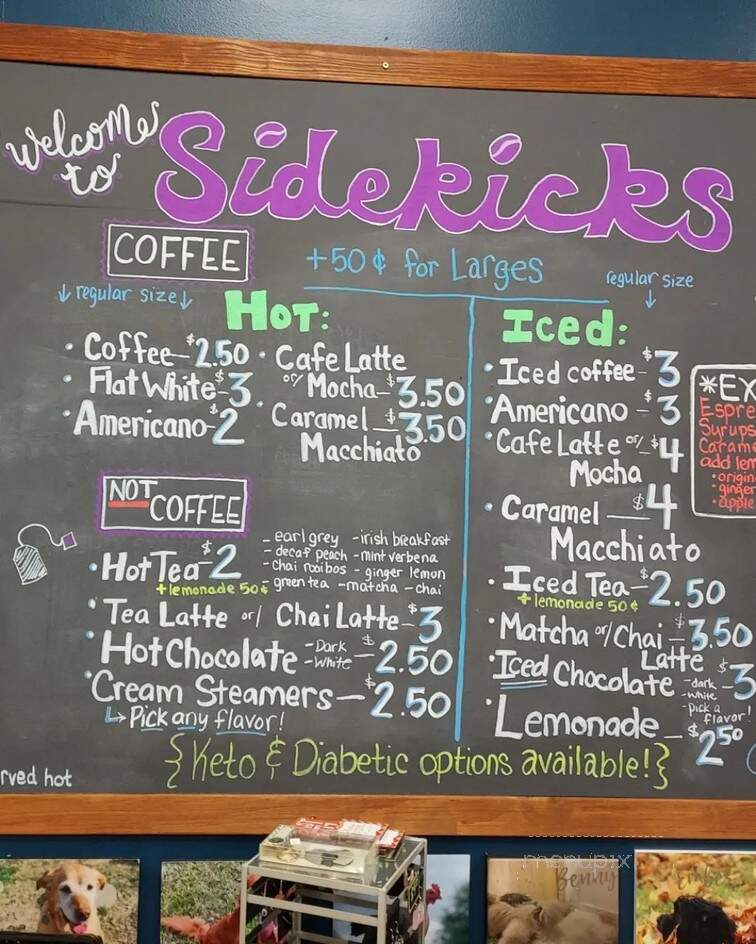 welcome
to
Sidekicks
COFFEE
+50¢ for Larges
↓ regular size ↓
regular size
↓
Hot:
• Coffee — $2.50
• Flat White - $3
• Americano - $2
• Cafe Latte
or/ Mocha - $3.50
• Caramel — $3.50
Macchiato
NOT COFFEE
• Hot Tea - $2
+ lemonade 50¢
- earl grey - irish breakfast
- decaf peach - mint verbena
- chai rooibos - ginger lemon
- green tea - matcha - chai
• Tea Latte or/ Chai Latte - $3
• Hot Chocolate - Dark
- White — $2.50
• Cream Steamers — $2.50
↳ Pick any flavor!
Iced:
• Iced coffee - $3
• Americano - $3
• Cafe Latte or/ $4
Mocha
• Caramel — $4
Macchiato
• Iced Tea — $2.50
+ lemonade 50¢
• Matcha or/ Chai - $3.50
Latte
• Iced Chocolate $3
- dark
- white
- pick a
flavor!
• Lemonade — $2.50
*EX
Espre
Syrups
Carame
add lem
• origin
• ginger
• apple
{Keto & Diabetic options available!}
rved hot
menupix
Benny